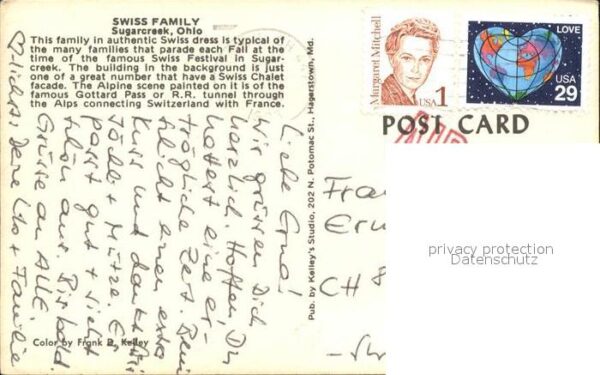 SWISS FAMILY
Sugarcreek, Ohio
This family in authentic Swiss dress is typical of
the many families that parade each Fall at the
time of the famous Swiss Festival in Sugar-
creek. The building in the background is just
one of a great number that have a Swiss Chalet
facade. The Alpine scene painted on it is of the
famous Gottard Pass or R.R. tunnel through
the Alps connecting Switzerland with France.
Liebe Erna!
Wir grüssen Dich
herzlich. Hoffen Du
hattest eine er-
trägliche Zeit. Beni
schickt einen extra
Kuss und dankt für
+ Mütze. Es
passt gut + sieht
schön aus. Bis bald.
Grüsse an Alle
Familie
Color by Frank D. Kelley
Pub. by Kelley's Studio, 202 N. Potomac St., Hagerstown, Md.
Margaret Mitchell
USA 1
LOVE
USA
29
POST CARD
Fra
CH 8
privacy protection
Datenschutz